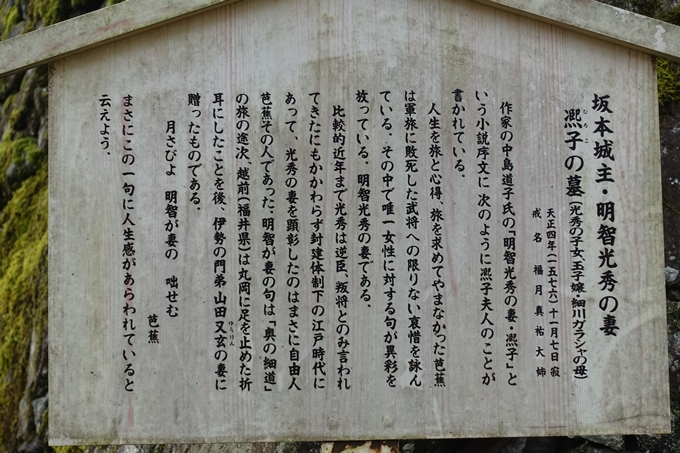 坂本城主・明智光秀の妻
熈子の墓(光秀の子女 玉子嬢・細川ガラシャの母)
ひろこ
天正四年(一五七六)十一月七日寂
戒名 福月真祐大姉
作家の中島道子氏の「明智光秀の妻・熈子」と
いう小説序文に 次のように熈子夫人のことが
書かれている.
人生を旅と心得、旅を求めてやまなかった芭蕉
は軍旅に敗死した武将への限りない哀惜を詠ん
ている. その中で唯一女性に対する句が異彩を
放っている. 明智光秀の妻である.
比較的近年まで光秀は逆臣、叛将とのみ言われ
てきたにもかかわらず封建体制下の江戸時代に
あって、光秀の妻を顕彰したのはまさに自由人
芭蕉その人であった. 明智が妻の句は「奥の細道」
の旅の途次、越前(福井県)は丸岡に足を止めた折
耳にしたことを後、伊勢の門弟 山田又玄の妻に
ゆうげん
贈ったものである.
月さびよ 明智が妻の 咄せむ
芭蕉
まさにこの一句に人生感があらわれていると
云えよう.